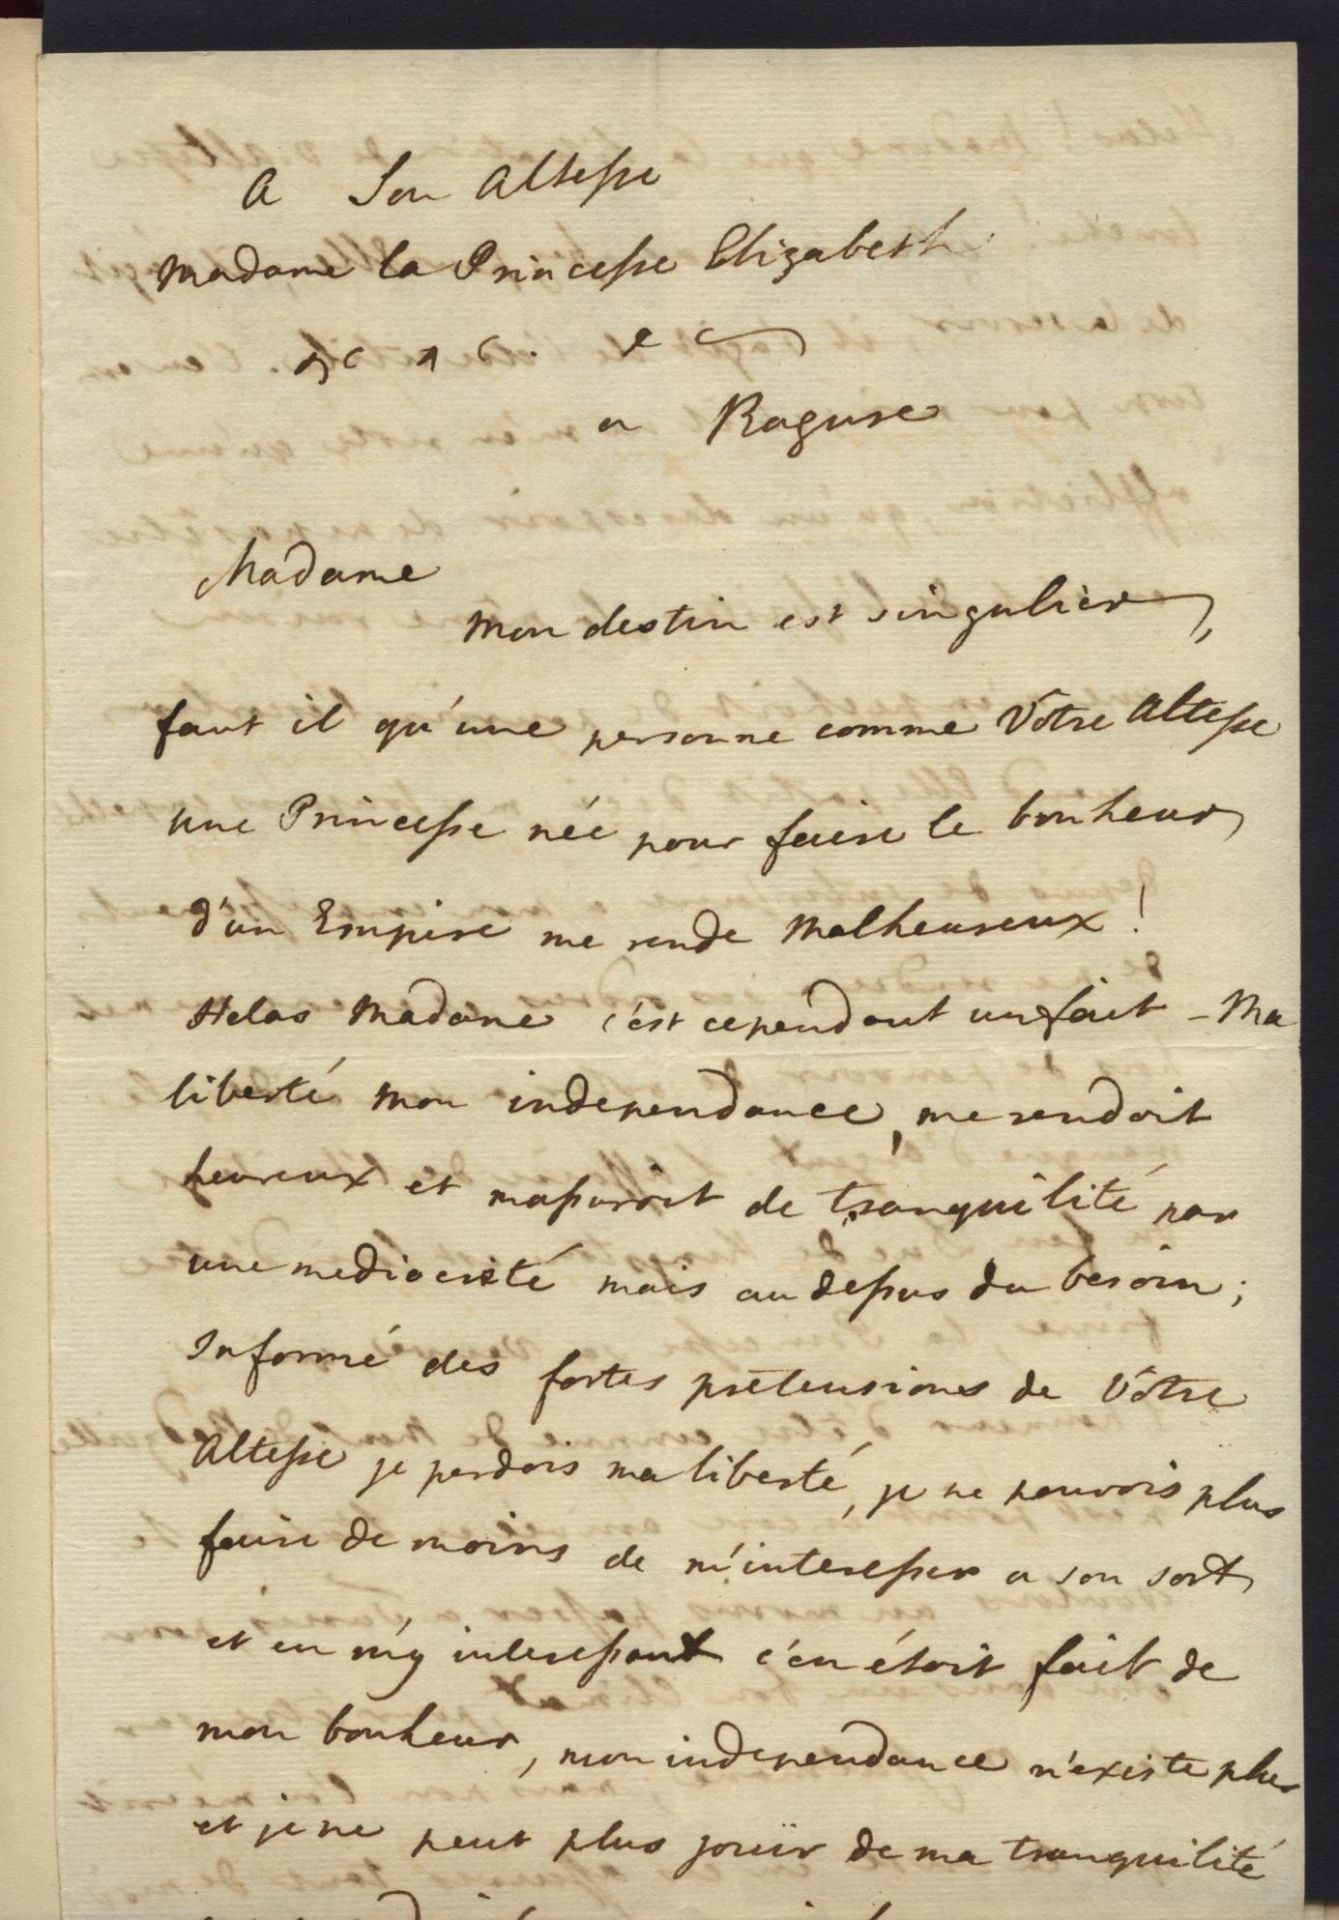 A Son Altesse
Madame la Princesse Elizabeth
a Raguse
Madame
Mon destin est singulier,
faut il qu'une personne comme Votre Altesse
une Princesse née pour faire le bonheur
d'un Empire me rende Malheureux!
Helas Madame c'est cependant un fait - Ma
liberté mon independance, me rendoit
heureux et m'assuroit de tranquilité par
une mediocrité mais au dessus du besoin;
Informé des fortes pretensions de Votre
Altesse je perdois ma liberté, je ne pouvois plus
faire de moins de m'interesser a son sort
et en m'y interessant c'en étoit fait de
mon bonheur, mon independance n'existe plus
et je ne peut plus jouïr de ma tranquilité